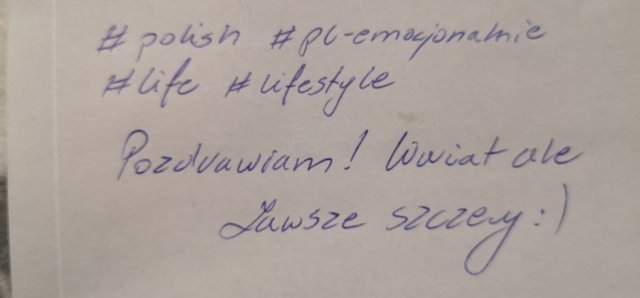 #polish #pl-emocjonalnie
#life #lifestyle
Pozdrawiam! Wwiat ale
Zawsze szczery:)